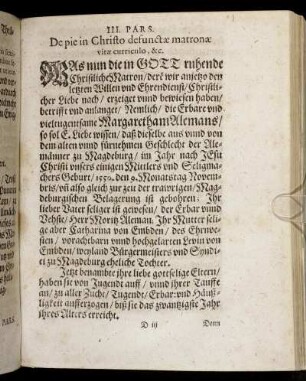 III. PARS.
De pie in Christo defunctæ matronæ
vitæ curriculo, &c.
WAs nun die in GOTT ruhende
Christliche Matron / derẽ wir anjetzo den
letzten Willen vnd Ehrendienst / Christli-
cher Liebe nach / erzeiget vnnd bewiesen haben /
betrifft vnd anlanget / Nemlich / die Erbare vnd
vieltugentsame Margaretham Alemans /
so sol E. Liebe wissen / daß dieselbe aus vnnd von
dem alten vnnd fürnehmen Geschlecht der Ale-
männer zu Magdeburg / im Jahr nach JEsu
Christi vnsers einigen Mitlers vnd Seligma-
chers Geburt / 1550. den 9. Monatstag Novem-
bris / vñ also gleich zur zeit der trawrigen / Mag-
deburgischen Belagerung ist gebohren. Ihr
lieber Vater seliger ist gewesen / der Erbar vnnd
Vehste / Herr Moritz Aleman. Ihr Mutter seli-
ge aber Catharina von Embden / des Ehrnve-
sten / vorachtbarn vnnd hochgelarten Levin von
Embden / weyland Bürgermeisters vnd Syndi-
ci zu Magdeburg eheliche Tochter.
Jetzt benambte ihre liebe gottselige Eltern /
haben sie von Jugend auff / vnnd ihrer Tauffe
an / zu aller Zucht / Tugendt / Erbar: vnd Häuß-
ligkeit aufferzogen / biß sie das zwantzigste Jahr
ihres Alters erreicht.
D iij
Denn
PARS.